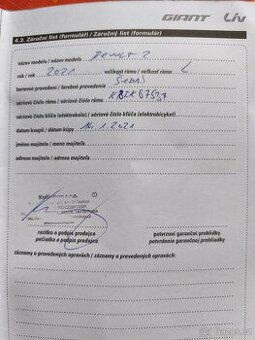 GIANT Liv
4.3. Záruční list (formulár) / Záručný list (formulár)
název modelu / názov modelu Revolt 2
rok / rok 2021 velikost rámu / veľkosť rámu L
barevné provedení / farebné prevedenie
sériové číslo rámu / sériové číslo rámu
sériové číslo klíče (elektrokola) / sériové číslo kľúča (elektrobicykel)
datum koupě / dátum kúpy 14.1.2021
jméno majitele / meno majiteľa
adresa majitele / adresa majiteľa
razítko a podpis prodejce
pečiatka a podpis predajcu
potvrzení garanční prohlídky
potvrdenie garančnej prehliadky
záznamy o provedených opravách / záznamy o prevedených opravách: